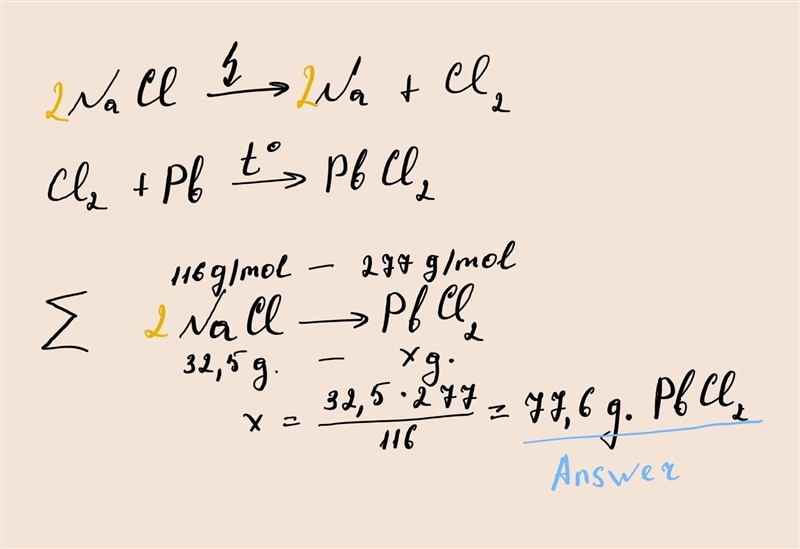 2NaCl ↯→ 2Na + Cl₂
Cl₂ + Pb t°→ PbCl₂
116 g/mol — 277 g/mol
∑ 2NaCl → PbCl₂
32,5 g. — x g.
x = 32,5 · 277 / 116 = 77,6 g. PbCl₂
Answer